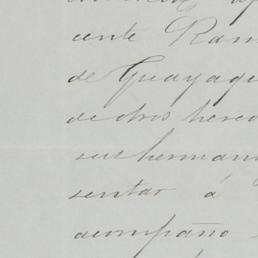 ente Ram
de Guayaqu
de otros hered
sus herman
sentar á
acompaño